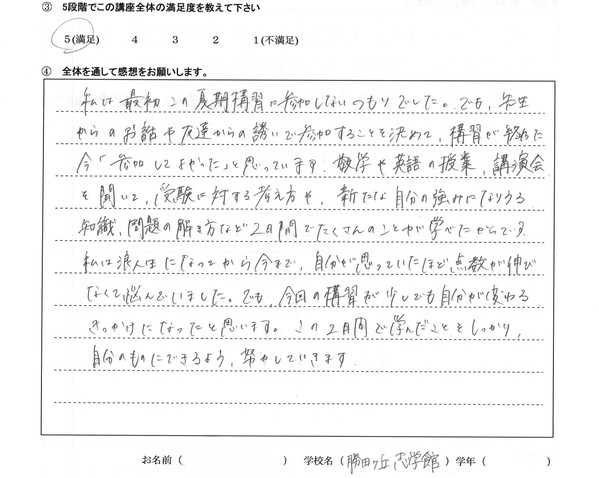 ③ 5段階でこの講座全体の満足度を教えて下さい
5(満足) 4 3 2 1(不満足)
④ 全体を通して感想をお願いします。
私は最初この夏期講習に参加しないつもりでした。でも、先生
からのお話や友達からの誘いで参加することを決めて、講習が終わった
今「参加してよかった」と思っています。数学や英語の授業、講演会
を聞いて、受験に対する考え方や、新たな自分の強みになりうる
知識、問題の解き方など2日間でたくさんのことが学べたからです。
私は浪人生になってから今まで、自分が思っていたほど点数が伸び
なくて悩んでいました。でも、今回の講習が少しでも自分が変わる
きっかけになったと思います。この2日間で学んだことをしっかり、
自分のものにできるよう、努力していきます。
お名前( ) 学校名(勝田ケ丘志学館)学年( )